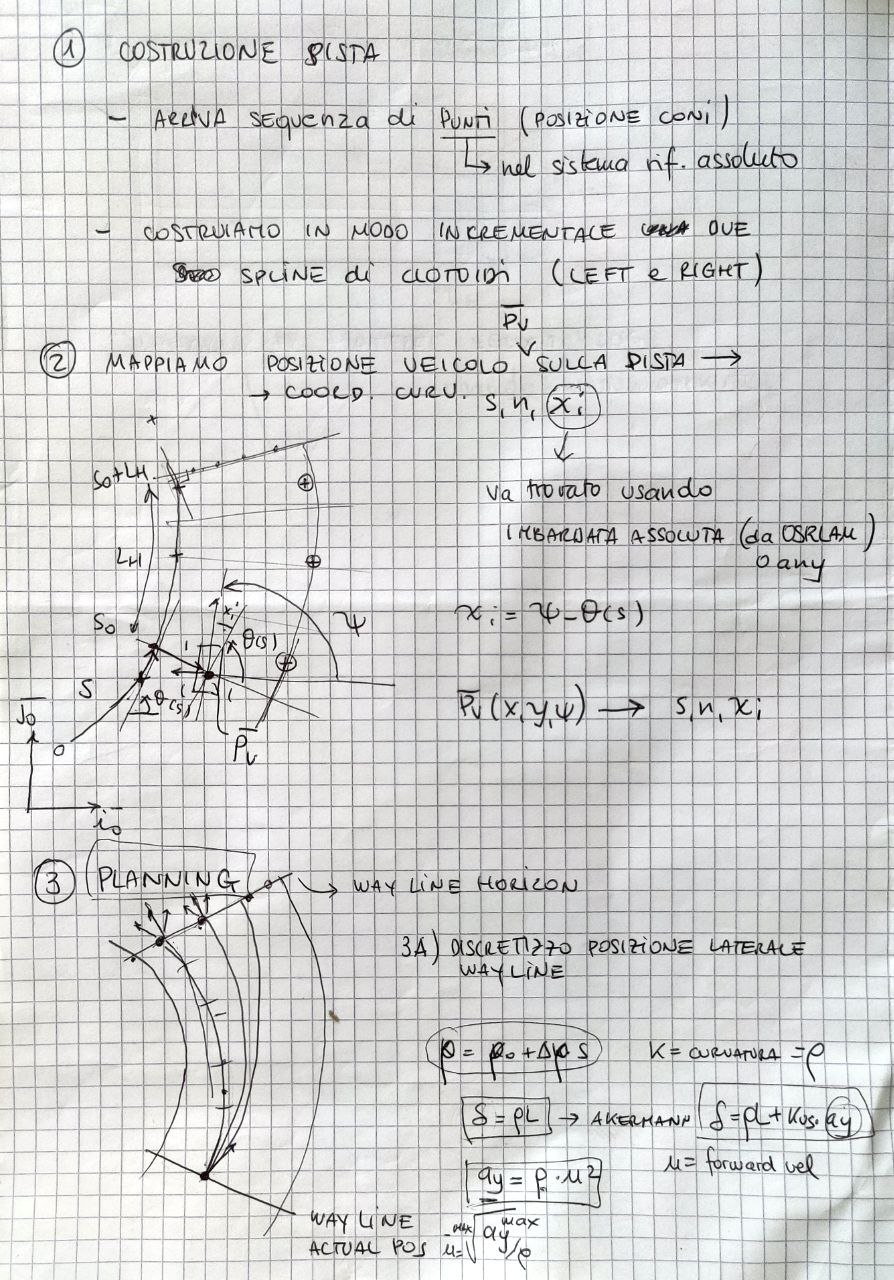 1 COSTRUZIONE PISTA
- ARRIVA sequenza di PUNTI (POSIZIONE CONI)
↳ nel sistema rif. assoluto
- COSTRUIAMO IN MODO INCREMENTALE DUE
SPLINE di CLOTOIDI (LEFT e RIGHT)
P̅v
2 MAPPIAMO POSIZIONE VEICOLO SULLA PISTA →
→ COORD. CURV. s, n, xi
↓
va trovato usando
IMBARDATA ASSOLUTA (da OSRLAM)
O any
S0+LH
LH
S0
S
xi
θ(s)
θ(s)
ψ
P̅v
J̅0
O
i̅0
xi = ψ-θ(s)
P̅v (x, y, ψ) → s, n, xi
3 PLANNING
→ WAY LINE HORIZON
3A) DISCRETIZZO POSIZIONE LATERALE
WAYLINE
ρ = ρ0 + Δρ s K = CURVATURA = ρ
δ = ρL → AKERMANN δ = ρL + Kus. ay
ay = ρ · u² u = forward vel
WAY LINE
ACTUAL POS
u^max = √ay^max/ρ